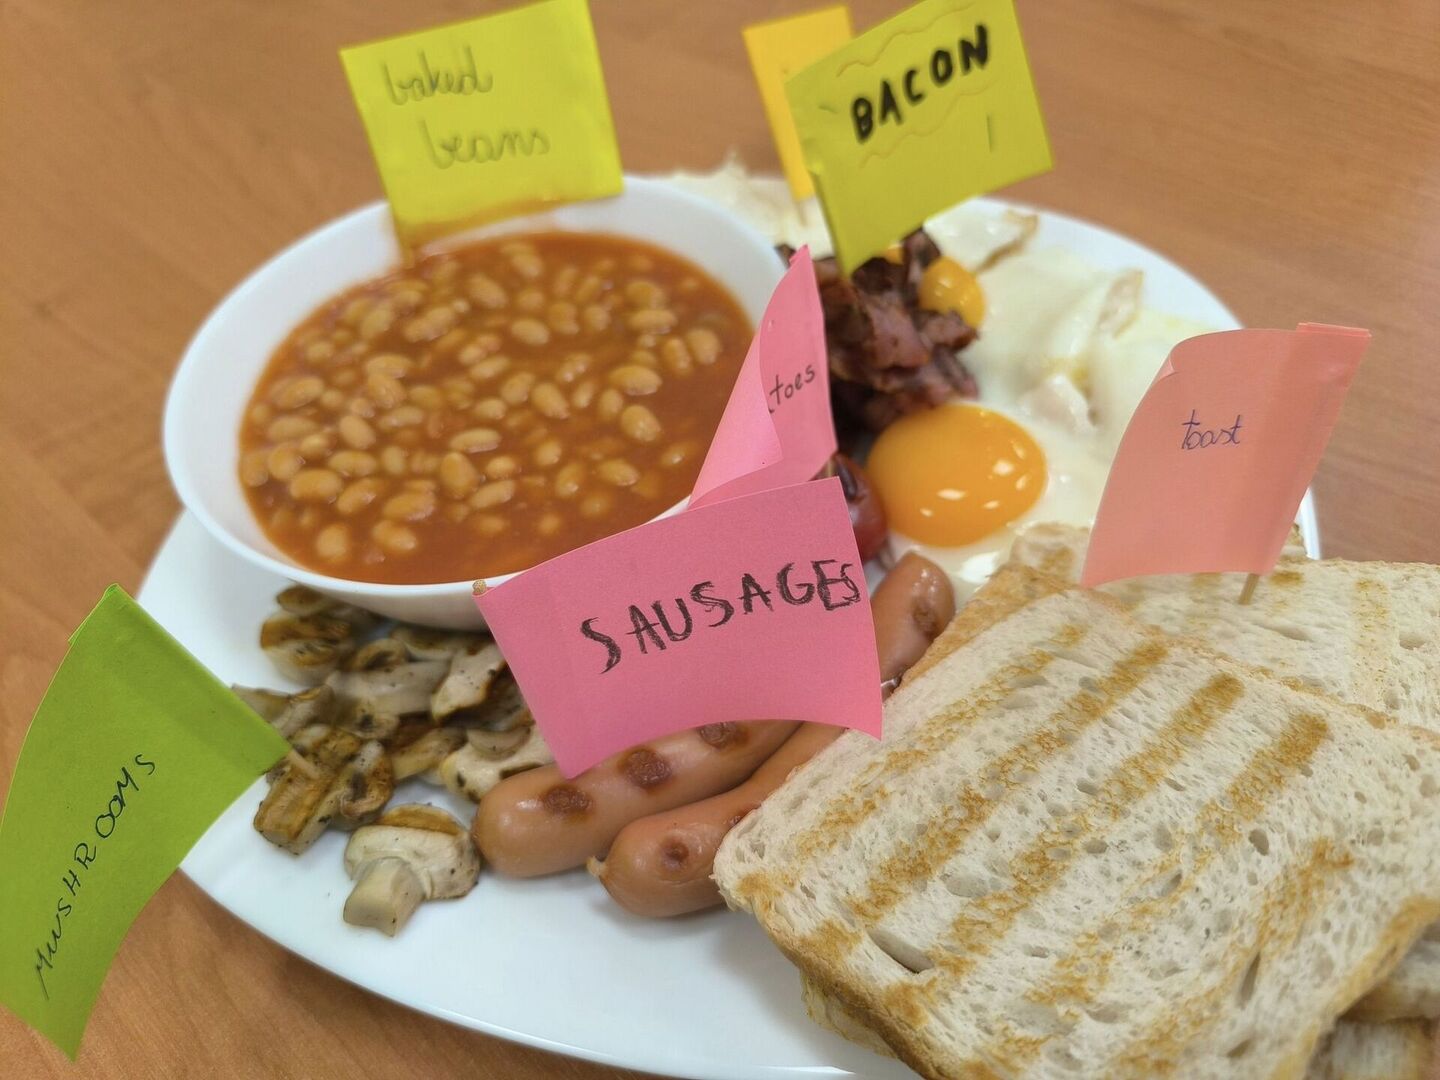 baked
beans
BACON
toes
toast
SAUSAGES
MUSHROOMS